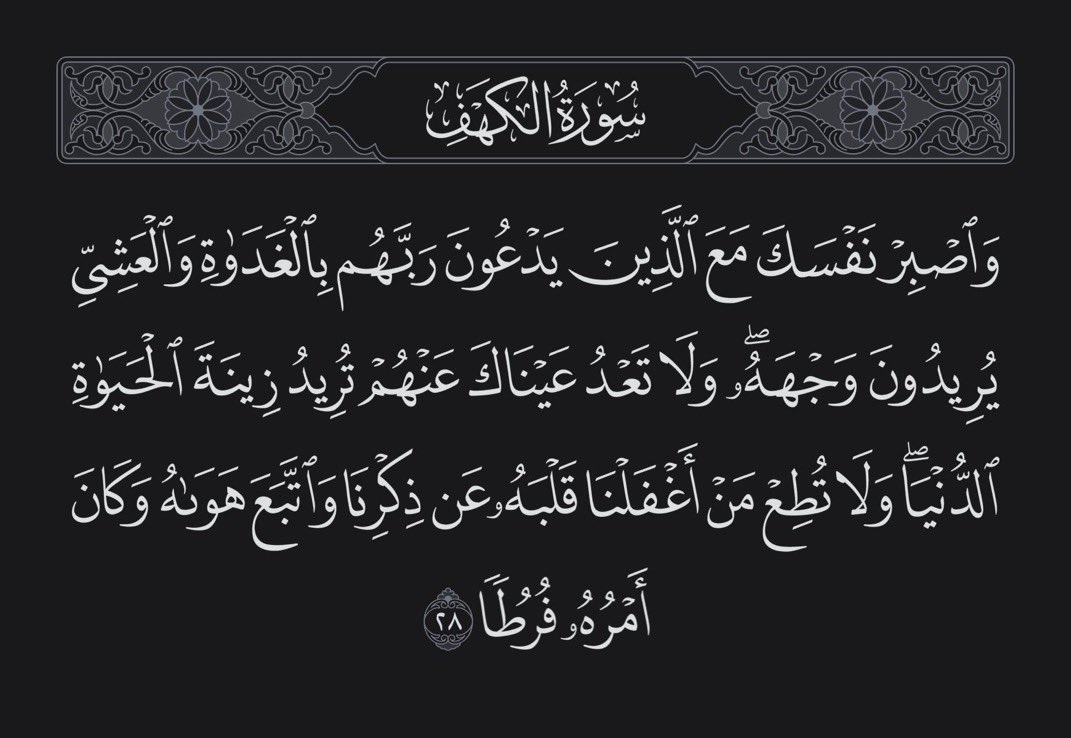 سُورَةُ الكَهْفِ
وَٱصۡبِرۡ نَفۡسَكَ مَعَ ٱلَّذِينَ يَدۡعُونَ رَبَّهُم بِٱلۡغَدَوٰةِ وَٱلۡعَشِيِّ
يُرِيدُونَ وَجۡهَهُۥۖ وَلَا تَعۡدُ عَيۡنَاكَ عَنۡهُمۡ تُرِيدُ زِينَةَ ٱلۡحَيَوٰةِ
ٱلدُّنۡيَاۖ وَلَا تُطِعۡ مَنۡ أَغۡفَلۡنَا قَلۡبَهُۥ عَن ذِكۡرِنَا وَٱتَّبَعَ هَوَىٰهُ وَكَانَ
أَمۡرُهُۥ فُرُطٗا ٢٨